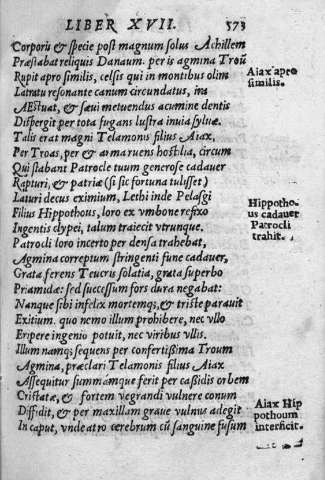 LIBER XVII. 573
Corporis & specie post magnum solus Achillem
Præstabat reliquis Danaum. per is agmina Troũ
Rupit apro similis, celsi qui in montibus olim
Latratu resonante canum circundatus, ira
AEstuat, & sæui metuendus acumine dentis
Dispergit per tota fugans lustra inuia syluæ.
Talis erat magni Telamonis filius Aiax,
Per Troas, per & arma ruens hostilia, circum
Qui stabant Patrocle tuum generose cadauer
Rapturi, & patriæ (si sic fortuna tulisset)
Laturi decus eximium, Lethi inde Pelasgi
Filius Hippothous, loro ex vmbone refixo
Ingentis clypei, talum traiecit vtrunque.
Patrocli loro incerto per densa trahebat,
Agmina correptum stringenti fune cadauer,
Grata ferens Teucris solatia, grata superbo
Priamidæ: sed successum fors dura negabat:
Nanque sibi infelix mortemq; & triste parauit
Exitium. quo nemo illum prohibere, nec vllo
Eripere ingenio potuit, nec viribus vllis.
Illum namq; sequens per confertißima Troum
Agmina, præclari Telamonis filius Aiax
Assequitur summámque ferit per caßidis orbem
Cristatæ, & fortem vegrandi vulnere conum
Diffidit, & per maxillam graue vulnus adegit
In caput, vnde atro cerebrum cũ sanguine fusum
Aiax apro
similis.
Hippotho
us cadauer
Patrocli
trahit.
Aiax Hip
pothoum
interficit.